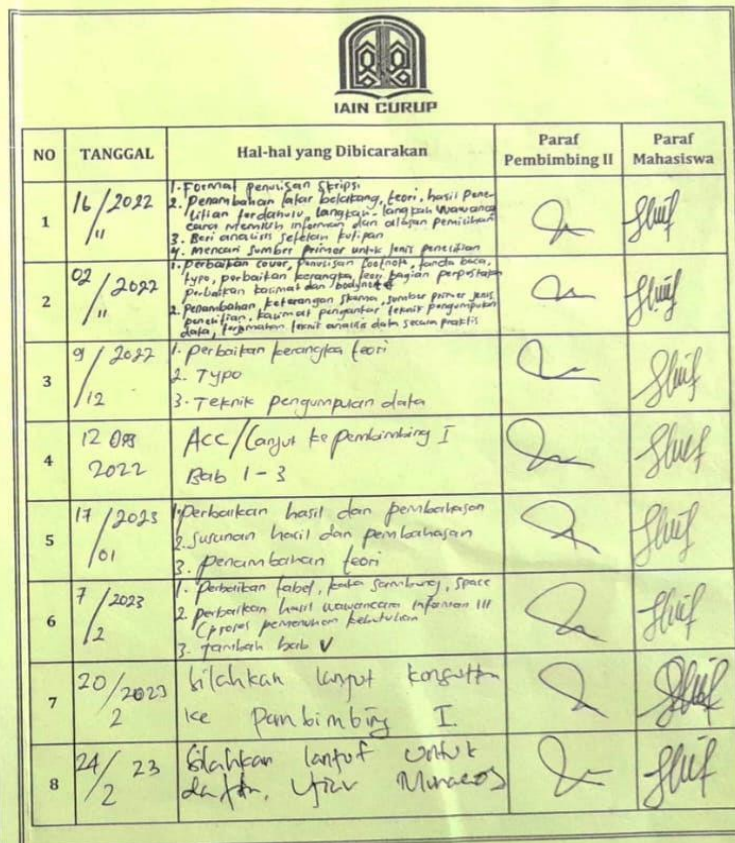 IAIN CURUP
NO TANGGAL Hal-hal yang Dibicarakan Paraf Pembimbing II Paraf Mahasiswa
1 16/2022 11
1. Format penulisan skripsi
2. Penambahan latar belakang, teori, hasil Pene-
litian terdahulu, langkah-langkah wawancara
cara memilih informan dan alasan pemilihan
3. Beri analisis setelah kutipan
4. Mencari sumber primer untuk jenis penelitian
2 02/2022 11
1. Perbaikan cover, penulisan footnote, tanda baca,
typo, perbaikan kerangka teori bagian
perbaikan kalimat dan bodynote
2. Penambahan, keterangan skema, sumber primer jenis
penelitian, kalimat pengantar teknik pengumpulan
data, terjemahan teknik analisis data secara praktis
3 9/2022 12
1. perbaikan kerangka teori
2. Typo
3. Teknik pengumpulan data
4 12 2022
ACC/Lanjut ke pembimbing I
Bab 1-3
5 17/2023 01
1. Perbaikan hasil dan pembahasan
2. susunan hasil dan pembahasan
3. penambahan teori
6 7/2023 2
1. Perbaikan tabel, kata sambung, space
2. perbaikan hasil wawancara informan III
(proses pemenuhan kebutuhan
3. tambah bab V
7 20/2023 2
silahkan lanjut
ke Pembimbing I.
8 24/23 2
silahkan lanjut untuk
daftar, Ujian